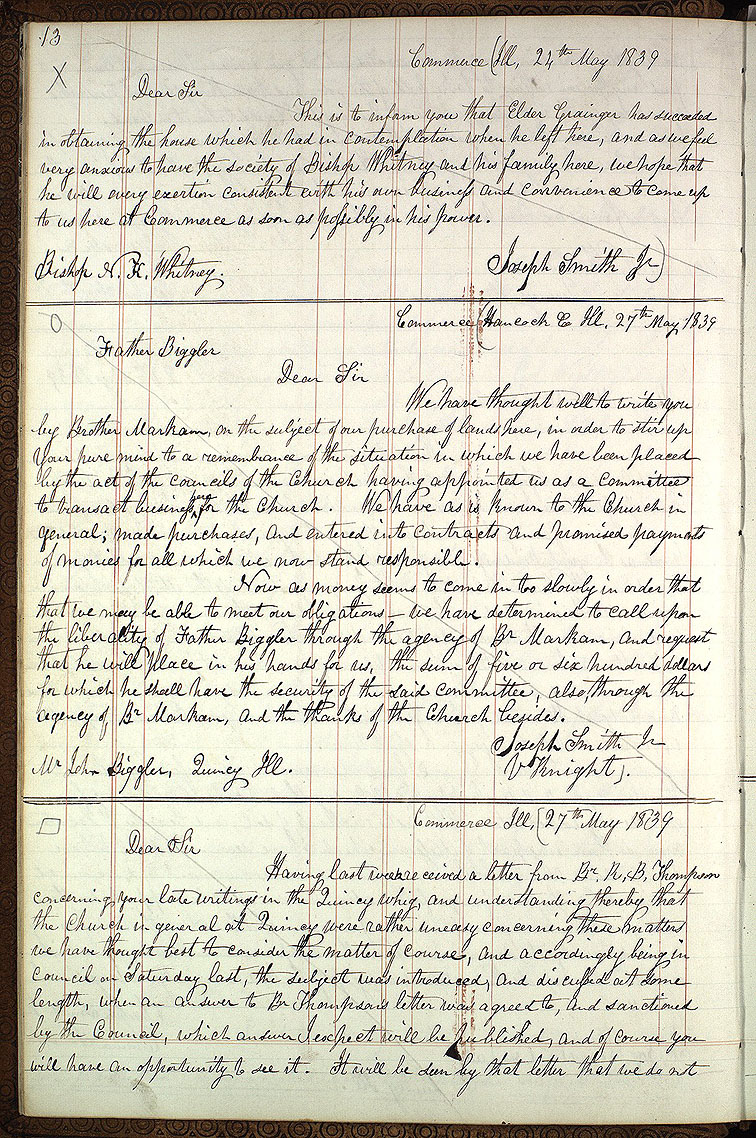 13
Commerce (Ill, 24th May 1839
X
Dear Sir
This is to inform you that Elder Grainger has succeeded
in obtaining the house which he had in contemplation when he left here, and as we feel
very anxious to have the society of Bishop Whitney and his family here, we hope that
he will every exertion consistent with his own business and convenience to come up
to us here at Commerce as soon as possibly in his power.
Bishop N. K. Whitney.
Joseph Smith Jr)
Commerce (Hancock Co Ill. 27th May 1839
Father Biggler
Dear Sir
We have thought well to write you
by Brother Markam, on the subject of our purchase of lands here, in order to stir up
your pure mind to a remembrance of the situation in which we have been placed
by the act of the councils of the Church having appointed us as a committee
to transact business here for the Church. We have as is known to the Church in
general; made purchases, and entered into contracts and promised payments
of monies for all which we now stand responsible.
Now as money seems to come in too slowly in order that
that we may be able to meet our obligations — we have determined to call upon
the liberality of Father Biggler through the agency of Br Markam, and request
that he will place in his hands for us, the sum of five or six hundred dollars
for which he shall have the security of the said committee, also, through the
agency of Br Markam, and the thanks of the Church besides.
Joseph Smith Jr
Mr John Biggler, Quincy Ill.
V Knight).
Commerce Ill, (27th May 1839
Dear Sir
Having last week received a letter from Br. R, B, Thompson
concerning your late writings in the Quincy whig, and understanding thereby that
the Church in general at Quincy were rather uneasy concerning these matters
we have thought best to consider the matter of course, and accordingly being in
council on Saturday last, the subject was introduced, and discussed at some
length, when an answer to Br Thompsons letter was agreed to, and sanctioned
by the Council, which answer I expect will be published, and of course you
will have an opportunity to see it. It will be seen by that letter that we do not